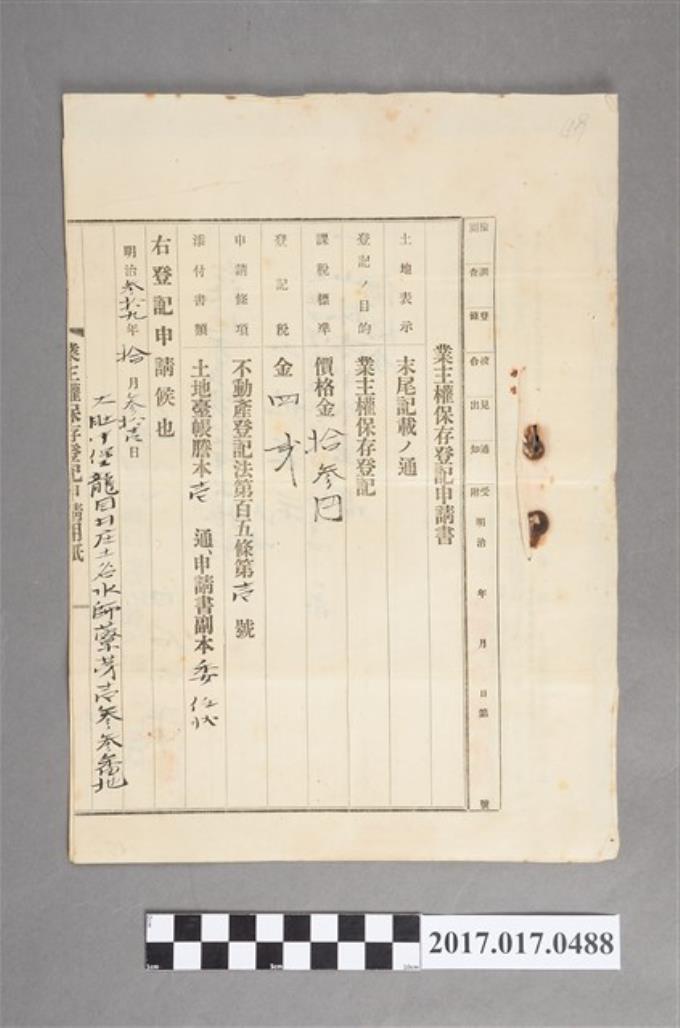 受附 明治 年 月 日 第 號
業主權保存登記申請書
土地表示 末尾記載ノ通
登記ノ目的 業主權保存登記
課稅標準 價格金 拾參円
登記稅 金 四
申請條項 不動產登記法第百五條第 壱 號
添付書類 土地臺帳謄本 壱 通、申請書副本 委任狀
右登記申請候也
明治 參拾九 年 拾 月 參拾壱 日
大肚中堡龍目井庄土名水師藔 壱參參番地
業主權保存登記申請用紙
2017.017.0488